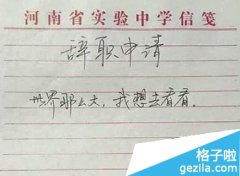 河南省实验中学信笺
辞职申请
世界那么大，我想去看看.
格子啦
gezila.com